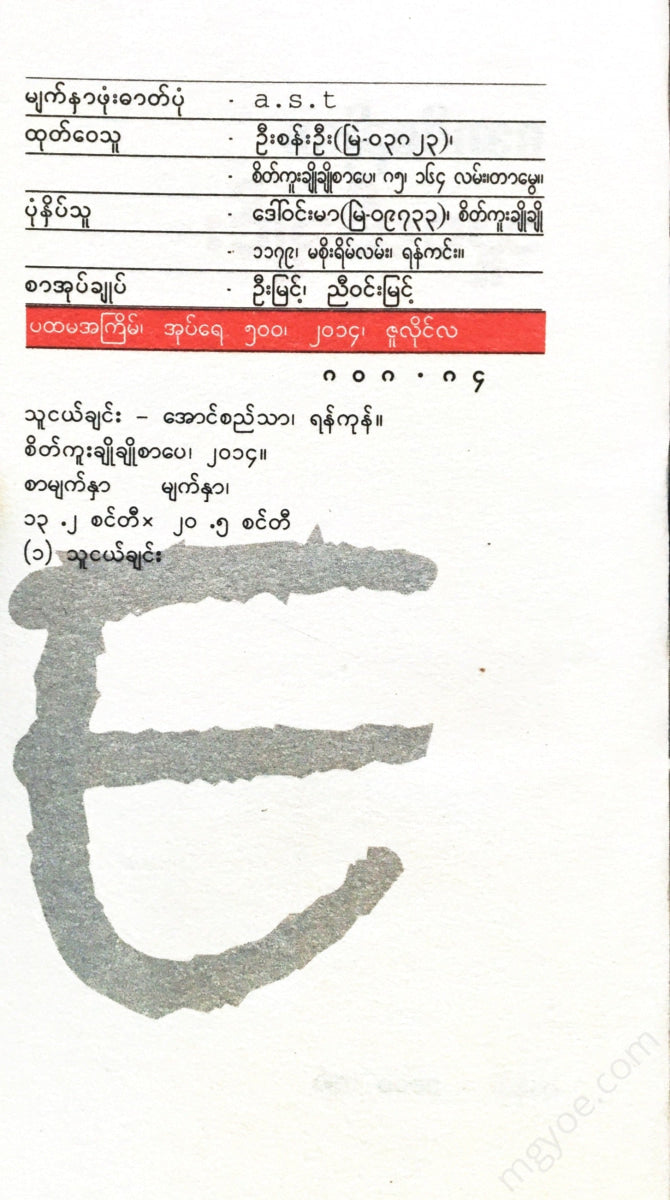 မျက်နှာဖုံးဓာတ်ပုံ - a.s.t
ထုတ်ဝေသူ - ဦးစန်းဦး(မြဲ-၀၃၈၂၃)၊
- စိတ်ကူးချိုချိုစာပေ၊ ၈၅၊ ၁၆၄ လမ်း၊တာမွေ။
ပုံနှိပ်သူ - ဒေါ်ဝင်းမာ(မြဲ-၀၉၇၃၃)၊ စိတ်ကူးချိုချို
- ၁၁၇၉၊ မစိုးရိမ်လမ်း၊ ရန်ကင်း။
စာအုပ်ချုပ် - ဦးမြင့်၊ ညီဝင်းမြင့်
ပထမအကြိမ်၊ အုပ်ရေ ၅၀၀၊ ၂၀၁၄၊ ဇူလိုင်လ
၈၀၈.၈၄
သူငယ်ချင်း – အောင်စည်သာ၊ ရန်ကုန်။
စိတ်ကူးချိုချိုစာပေ၊ ၂၀၁၄။
စာမျက်နှာ မျက်နှာ၊
၁၃ .၂ စင်တီ× ၂၀ .၅ စင်တီ
(၁) သူငယ်ချင်း
mgyoe.com